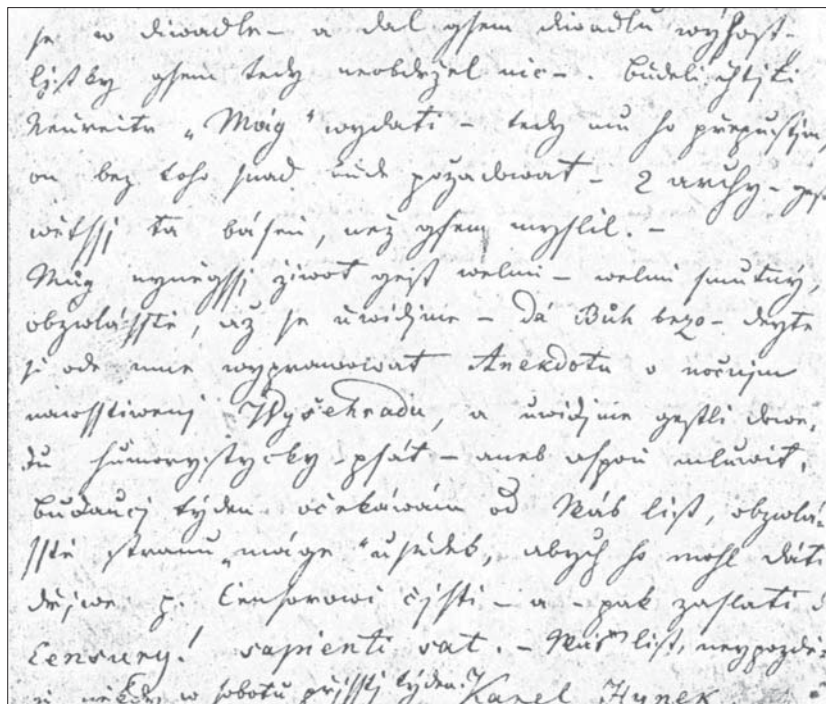 se w diwadle – a dal gsem diwadlu wýhost –
Ljstky gsem tedy neobdržel nic –. Budeli chtjti
Neureitr „Mág“ wydati – tedy mu ho přepustjm,
on bez toho snad bude požadowat – 2 archy – gest
wětssj ta báseň, než gsem myslil. –
Můg nyněgssj žiwot gest welmi – welmi smutný,
obzwlásstě, až se uwidjme – dá Bůh brzo – deyte
si ode mne wyprawowat Anekdotu o nočnjm
nawsstiwenj Wyšehradu, a uwidjme gestli dowe-
du humorystycky psát – aneb aspoň mluwit.
Budaucj týden očekáwám od Wás list, obzwlá-
sstě stranu „máge“ úsudek, abych ho mohl dáti
dřjwe p. Censorowi čjsti – a – pak zaslati
Censury! sapienti sat. – Wáš list, neypozdě-
gi někdy w sobotu přjsstj týden. Karel Hynek